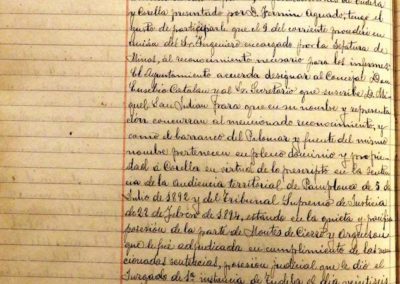 y Corella presentado por D. Fermin Aguado, tengo el
gusto de participarle que el 9 del corriente procederé en
unión del Sr. Ingeniero encargado por la Jefatura de
Minas, al reconocimiento necesario para los informes.
El Ayuntamiento acuerda designar al Concejal Don
Eusebio Catalan y al Sr. Secretario que suscribe D. Mi-
guel San Julian para que en su nombre y representa-
ción concurran al mencionado reconocimiento, y
como el barranco del Palomar y fuente del mismo
nombre pertenecen en pleno dominio y propie-
dad á Corella en virtud de lo prescripto en la senten-
cia de la audiencia territorial de Pamplona de 5 de
Julio de 1892 y del Tribunal Supremo de Justicia
de 22 de Febrero de 1894, estando en la quieta y pacifica
posesión de la parte de Montes de Cierzo y Argenzon
que le fué adjudicada en cumplimiento de las men-
cionadas sentencias, posesión judicial que le dió el
Juzgado de 1ª instancia de Tudela el dia veintiseis